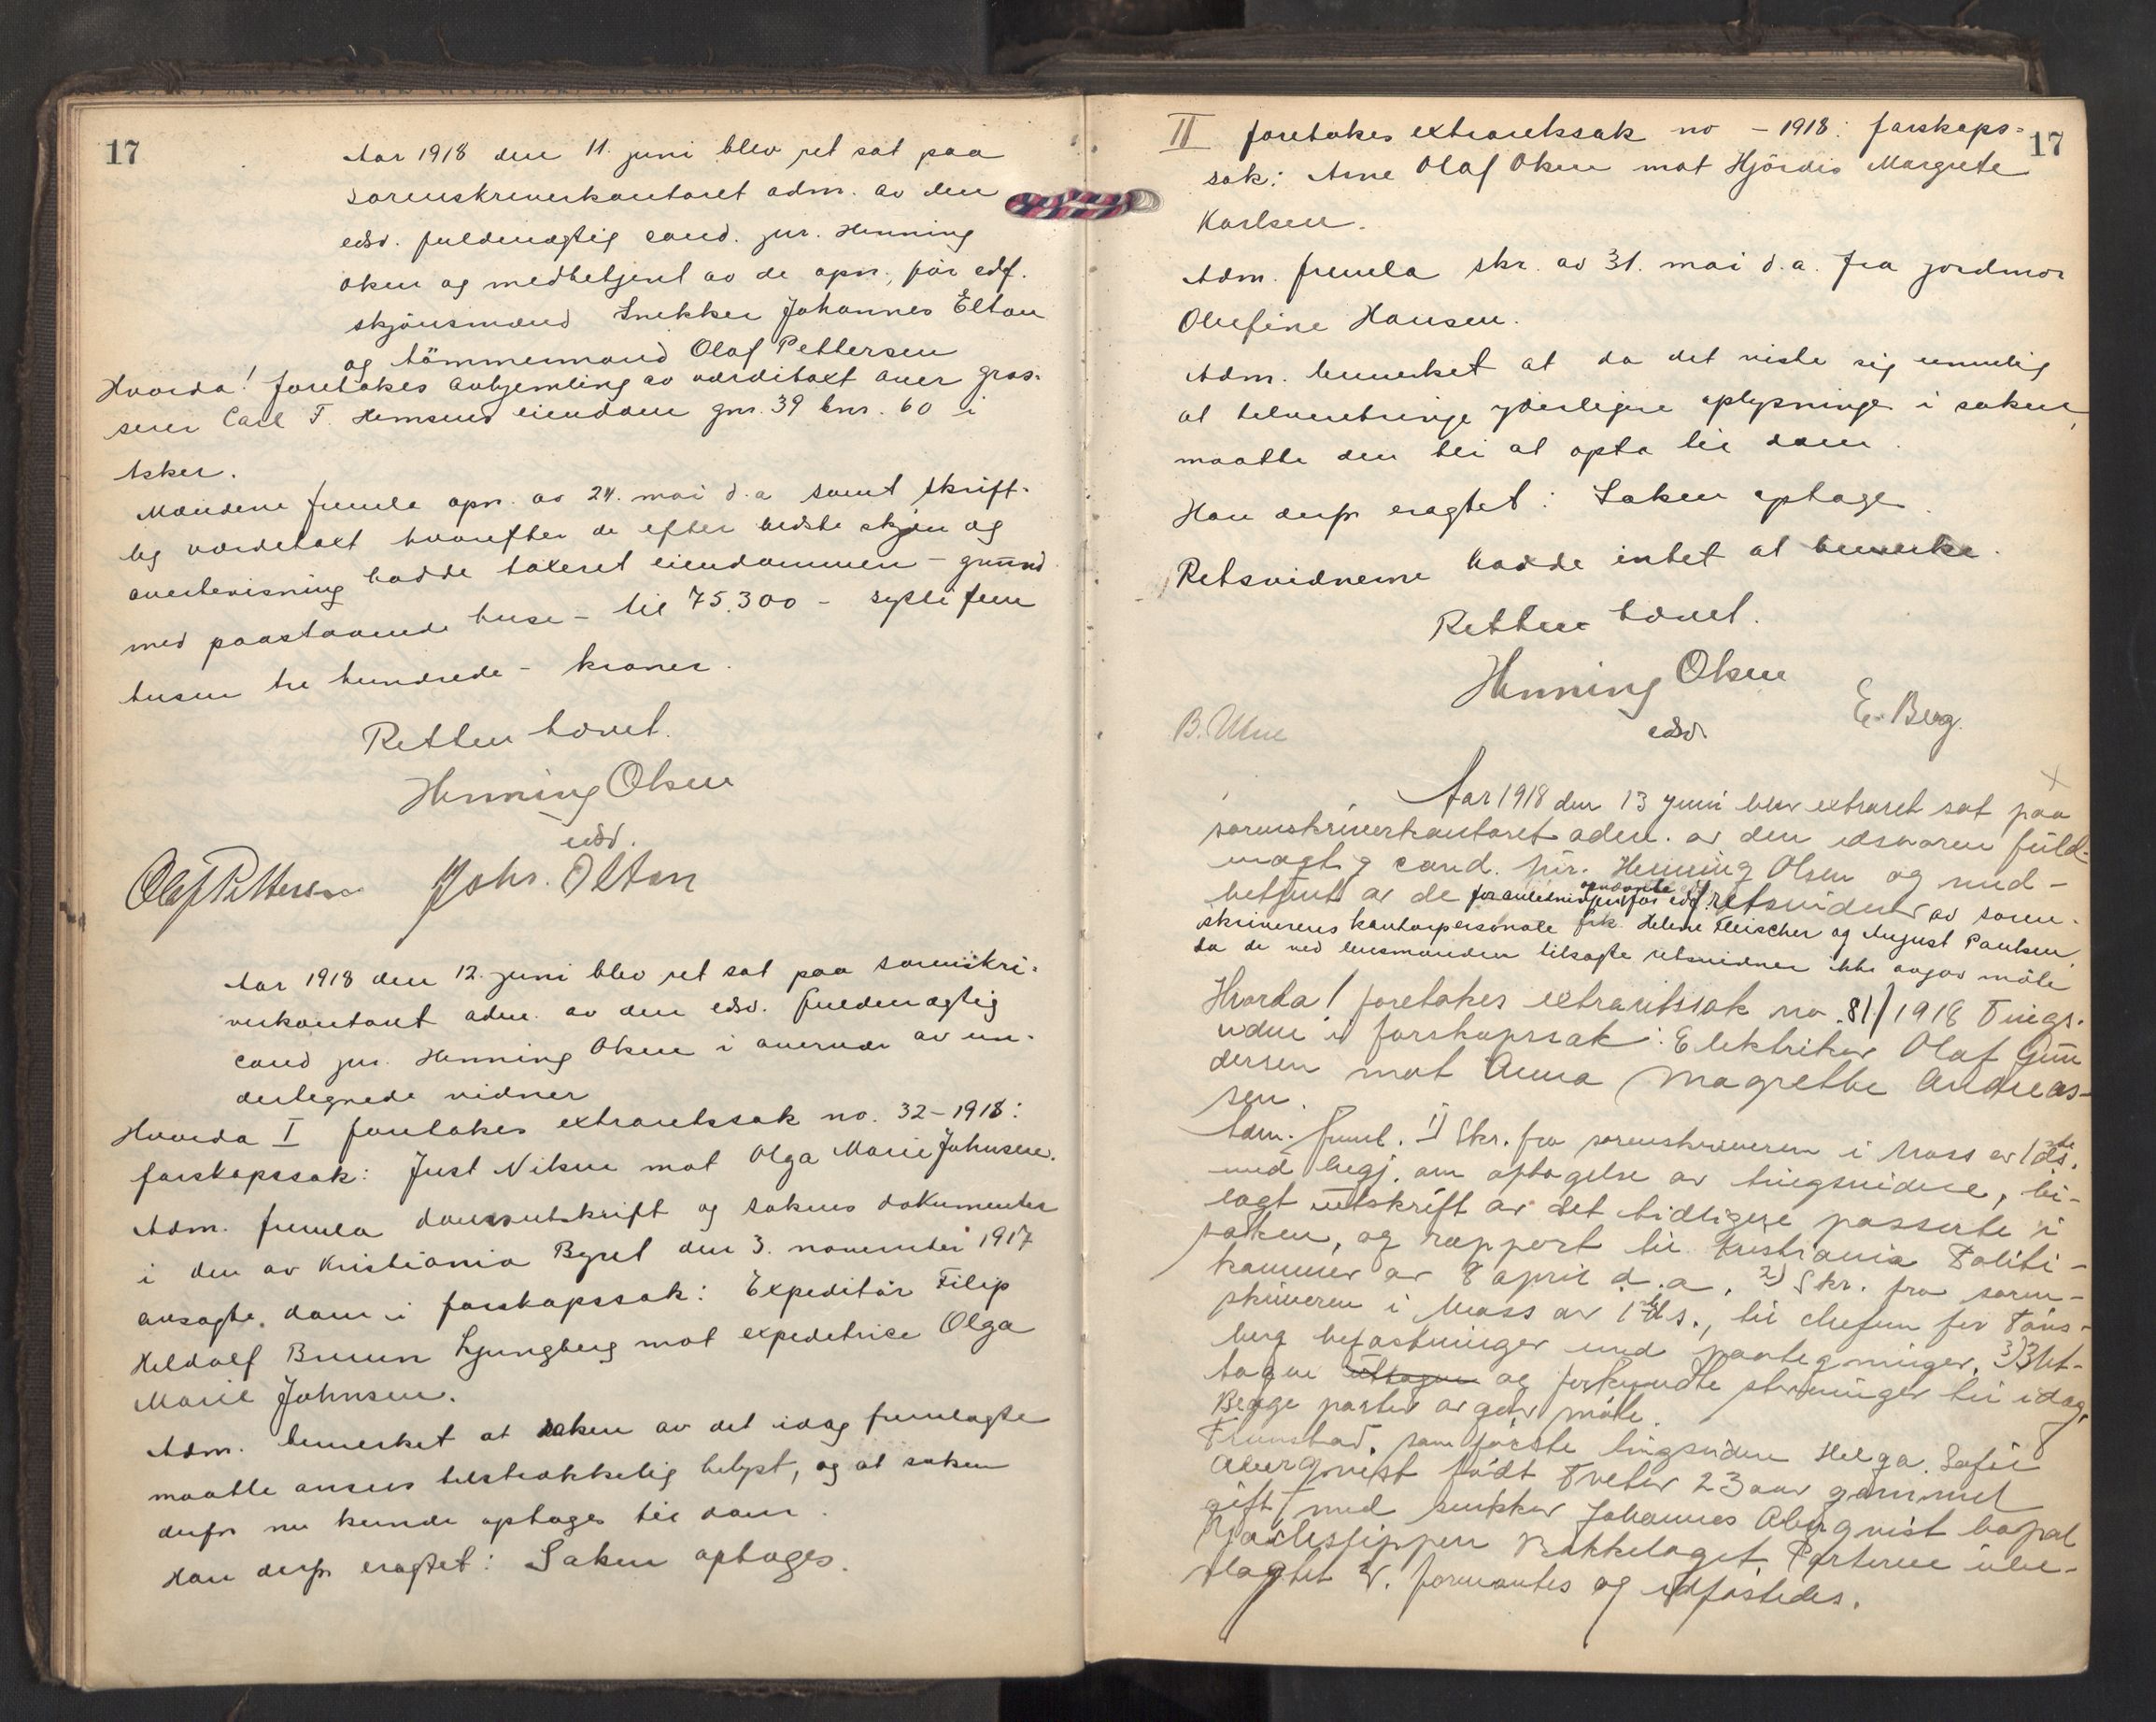 17
Aar 1918 den 11. juni blev ret sat paa
sorenskriverkontoret adm. av den
edsv. fuldmægtig cand. jur. Henning
Olsen og medbetjent av de opn., før edf.
skjønsmænd Snekker Johannes Elton
og tömmermand Olaf Pettersen
Hvorda! foretokes avhjemling av værditaxt over gros-
serer Carl F. Hemsens eiendom gnr. 39 bnr. 60 i
Asker.
Mændene fremla opn. av 24. mai d.a samt skrift-
lig værditaxt hvorefter de efter bedste skjøn og
overbevisning hadde taxeret eiendommen - grund
med paastaaende huse - til 75.300 - sytti fem
tusen tre hundrede - kroner.
Retten hævet.
Henning Olsen
edsv.
Olaf Pettersen Johs. Elton
Aar 1918 den 12. juni blev ret sat paa sorenskri-
verkontoret adm. av den edsv. fuldmægtig
cand jur. Henning Olsen i overvær av un-
dertegnede vidner
Hvorda I foretokes extraretssak no. 32-1918:
farskapssak: Just Nilsen mot Olga Marie Johnsen.
Adm. fremla domsutskrift og sakens dokumenter
i den av Kristiania Byret den 3. november 1917
avsagte dom i farskapssak: Expeditør Filip
Heldolf Bruun Ljungberg mot expeditrice Olga
Marie Johnsen.
Adm. bemerket at saken av det idag fremlagte
maatte ansees tilstrækkelig belyst, og at saken
derfor nu kunde optages til dom.
Han derfor eragtet: Saken optages.
17
II foretokes extraretssak no - 1918: farskaps-
sak: Arne Olaf Olsen mot Hjördis Margrete
Karlsen.
Adm. fremla skr. av 31. mai d.a. fra jordmor
Olufine Hansen.
Adm. bemerket at da det viste sig umulig
at tilveiebringe yderligere oplysninger i saken,
maatte den bli at opta til dom.
Han derfor eragtet: Saken optages.
Retsvidnerne hadde intet at bemerke.
Retten hævet.
Henning Olsen
edsv.
E. Berg.
B.
Aar 1918 den 13 juni blev extraret sat paa
sorenskriverkontoret adm. av den edsvoren fuld-
mægtig cand. jur. Henning Olsen og med-
betjent av de for anledningen opnævnte før edf. retsvidner av soren-
skriverens kontorpersonale frk. Helene Fleischer og August Paulsen,
da de ved lensmanden tilsagte retsvidner ikke avgav möte
Hvorda! foretokes extraretssak no. 81/1918 Tings-
vidne i farskapssak: Elektriker Olaf Gun
dersen mot Anna Magrethe Andreas-
sen.
Adm. freml. 1) Skr. fra sorenskriveren i Moss av 1ste ds.
med begj. om optagelse av tingsvidne, bi-
lagt utskrift av det tidligere passerte i
saken, og rapport til Kristiania Politi-
kammer av 8 april d.a. 2) Skr. fra soren-
skriveren i Moss av 1ste ds., til chefen for Tøns-
berg befæstninger med paategninger. 3) Ut-
tagne uttagne og forkyndte stevninger til idag.
Begge parter avgav möte.
Fremstod, som første tingsvidne Helga Sofie
Abergqvist født Tveter 23 aar gammel
gift med snekker Johannes Abergqvist bopæl
Bækkelaget Parterne ube-
slægtet V. formantes og edfæstedes.